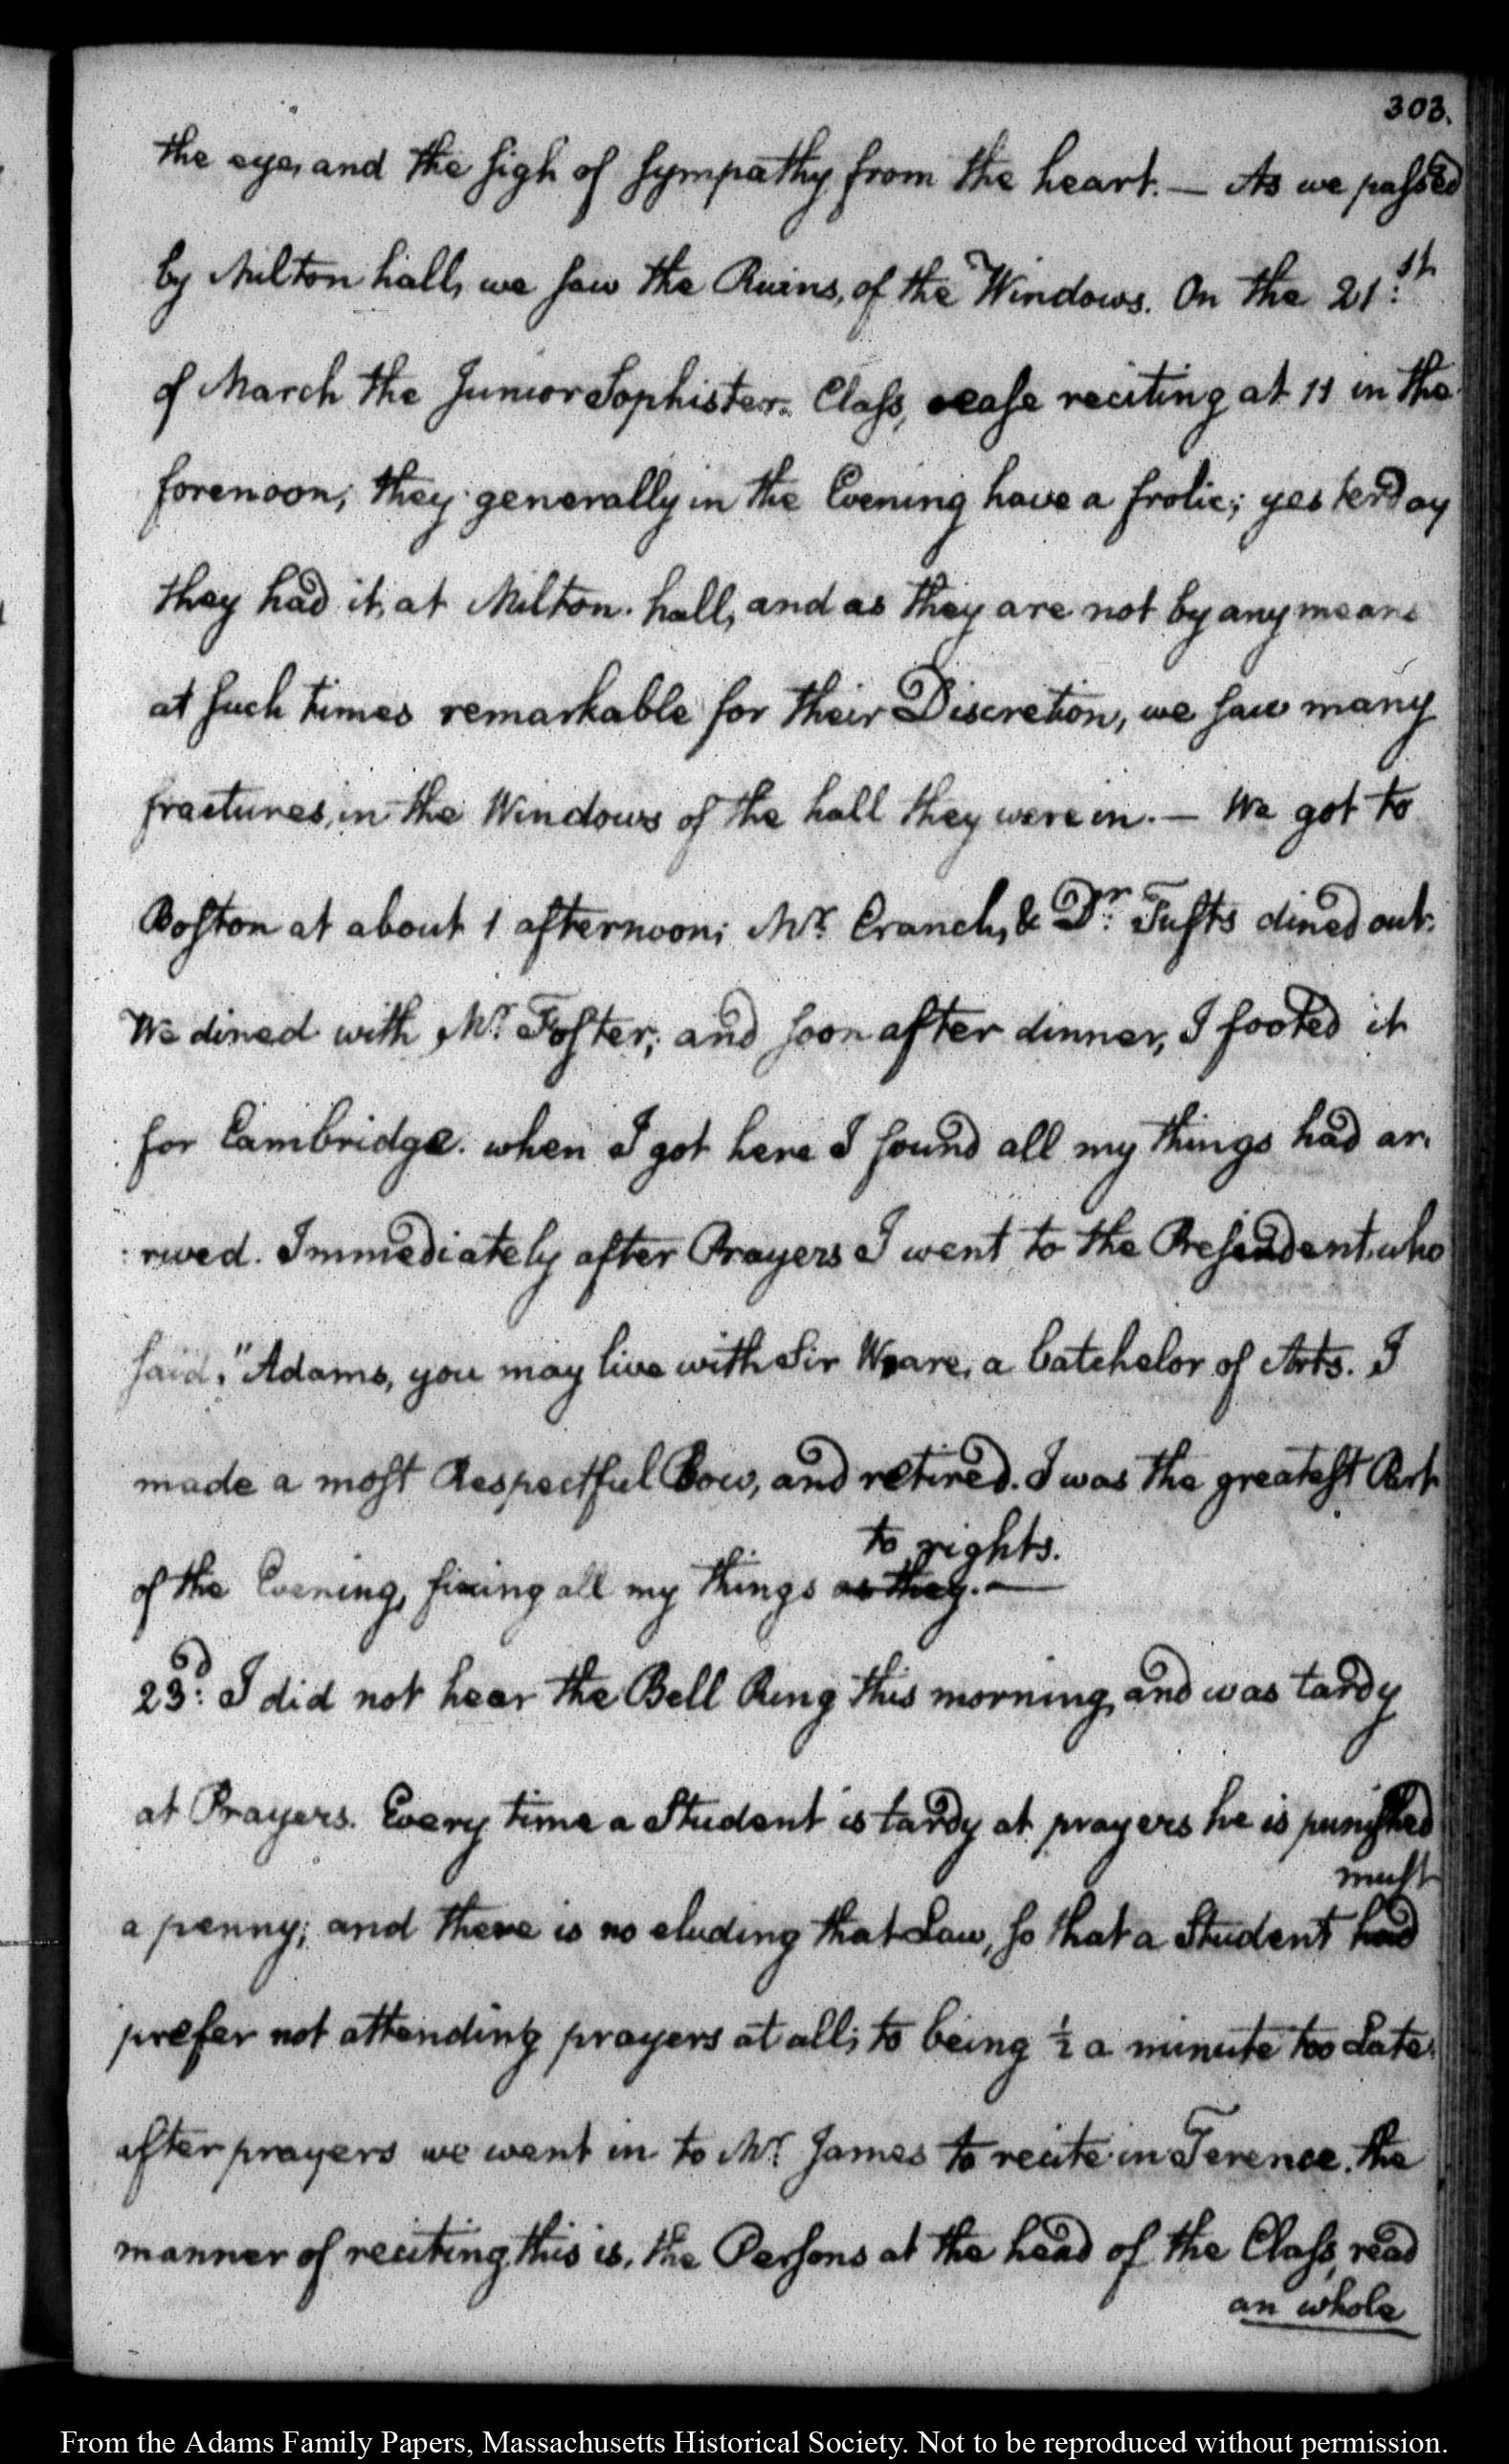 303.
the eye, and the sigh of sympathy from the heart. — As we passed
by Milton hall, we saw the Ruins, of the Windows. On the 21:st
of March the Junior Sophister. Class, cease reciting at 11 in the
forenoon; they generally in the Evening have a frolic; yesterday
they had it, at Milton. hall, and as they are not by any means
at such times remarkable for their Discretion, we saw many
fractures, in the Windows of the hall they were in. — We got to
Boston at about 1 afternoon; Mr. Cranch, & Dr. Tufts dined out.
We dined with Mr. Foster; and soon after dinner, I footed it
for Cambridge. when I got here I found all my things had ar:
:rived. Immediately after Prayers I went to the President, who
said, "Adams, you may live with Sir Ware, a batchelor of Arts. I
made a most Respectful Bow, and retired. I was the greatest Part
to rights.
of the Evening, fixing all my things as they. —
23d: I did not hear the Bell Ring this morning, and was tardy
at Prayers. Every time a Student is tardy at prayers he is punished
must
a penny; and there is no eluding that Law, so that a Student had
prefer not attending prayers at all, to being ½ a minute too Late.
after prayers we went in to Mr. James to recite in Terence. the
manner of reciting this is, the Persons at the head of the Class, read
an whole
From the Adams Family Papers, Massachusetts Historical Society. Not to be reproduced without permission.